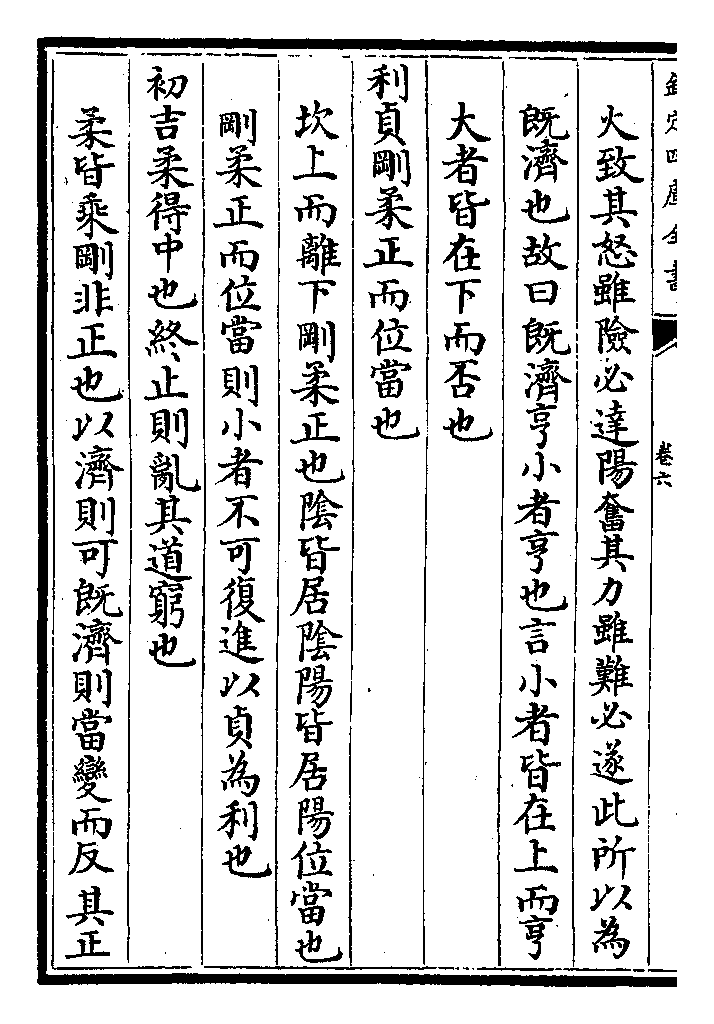 欽定四庫全書
卷六
火致其怒雖險必達陽奮其力雖難必遂此所以為
既濟也故曰既濟亨小者亨也言小者皆在上而亨
大者皆在下而否也
利貞剛柔正而位當也
坎上而離下剛柔正也陰皆居陰陽皆居陽位當也
剛柔正而位當則小者不可復進以貞為利也
初吉柔得中也終止則亂其道窮也
柔皆乘剛非正也以濟則可既濟則當變而反其正